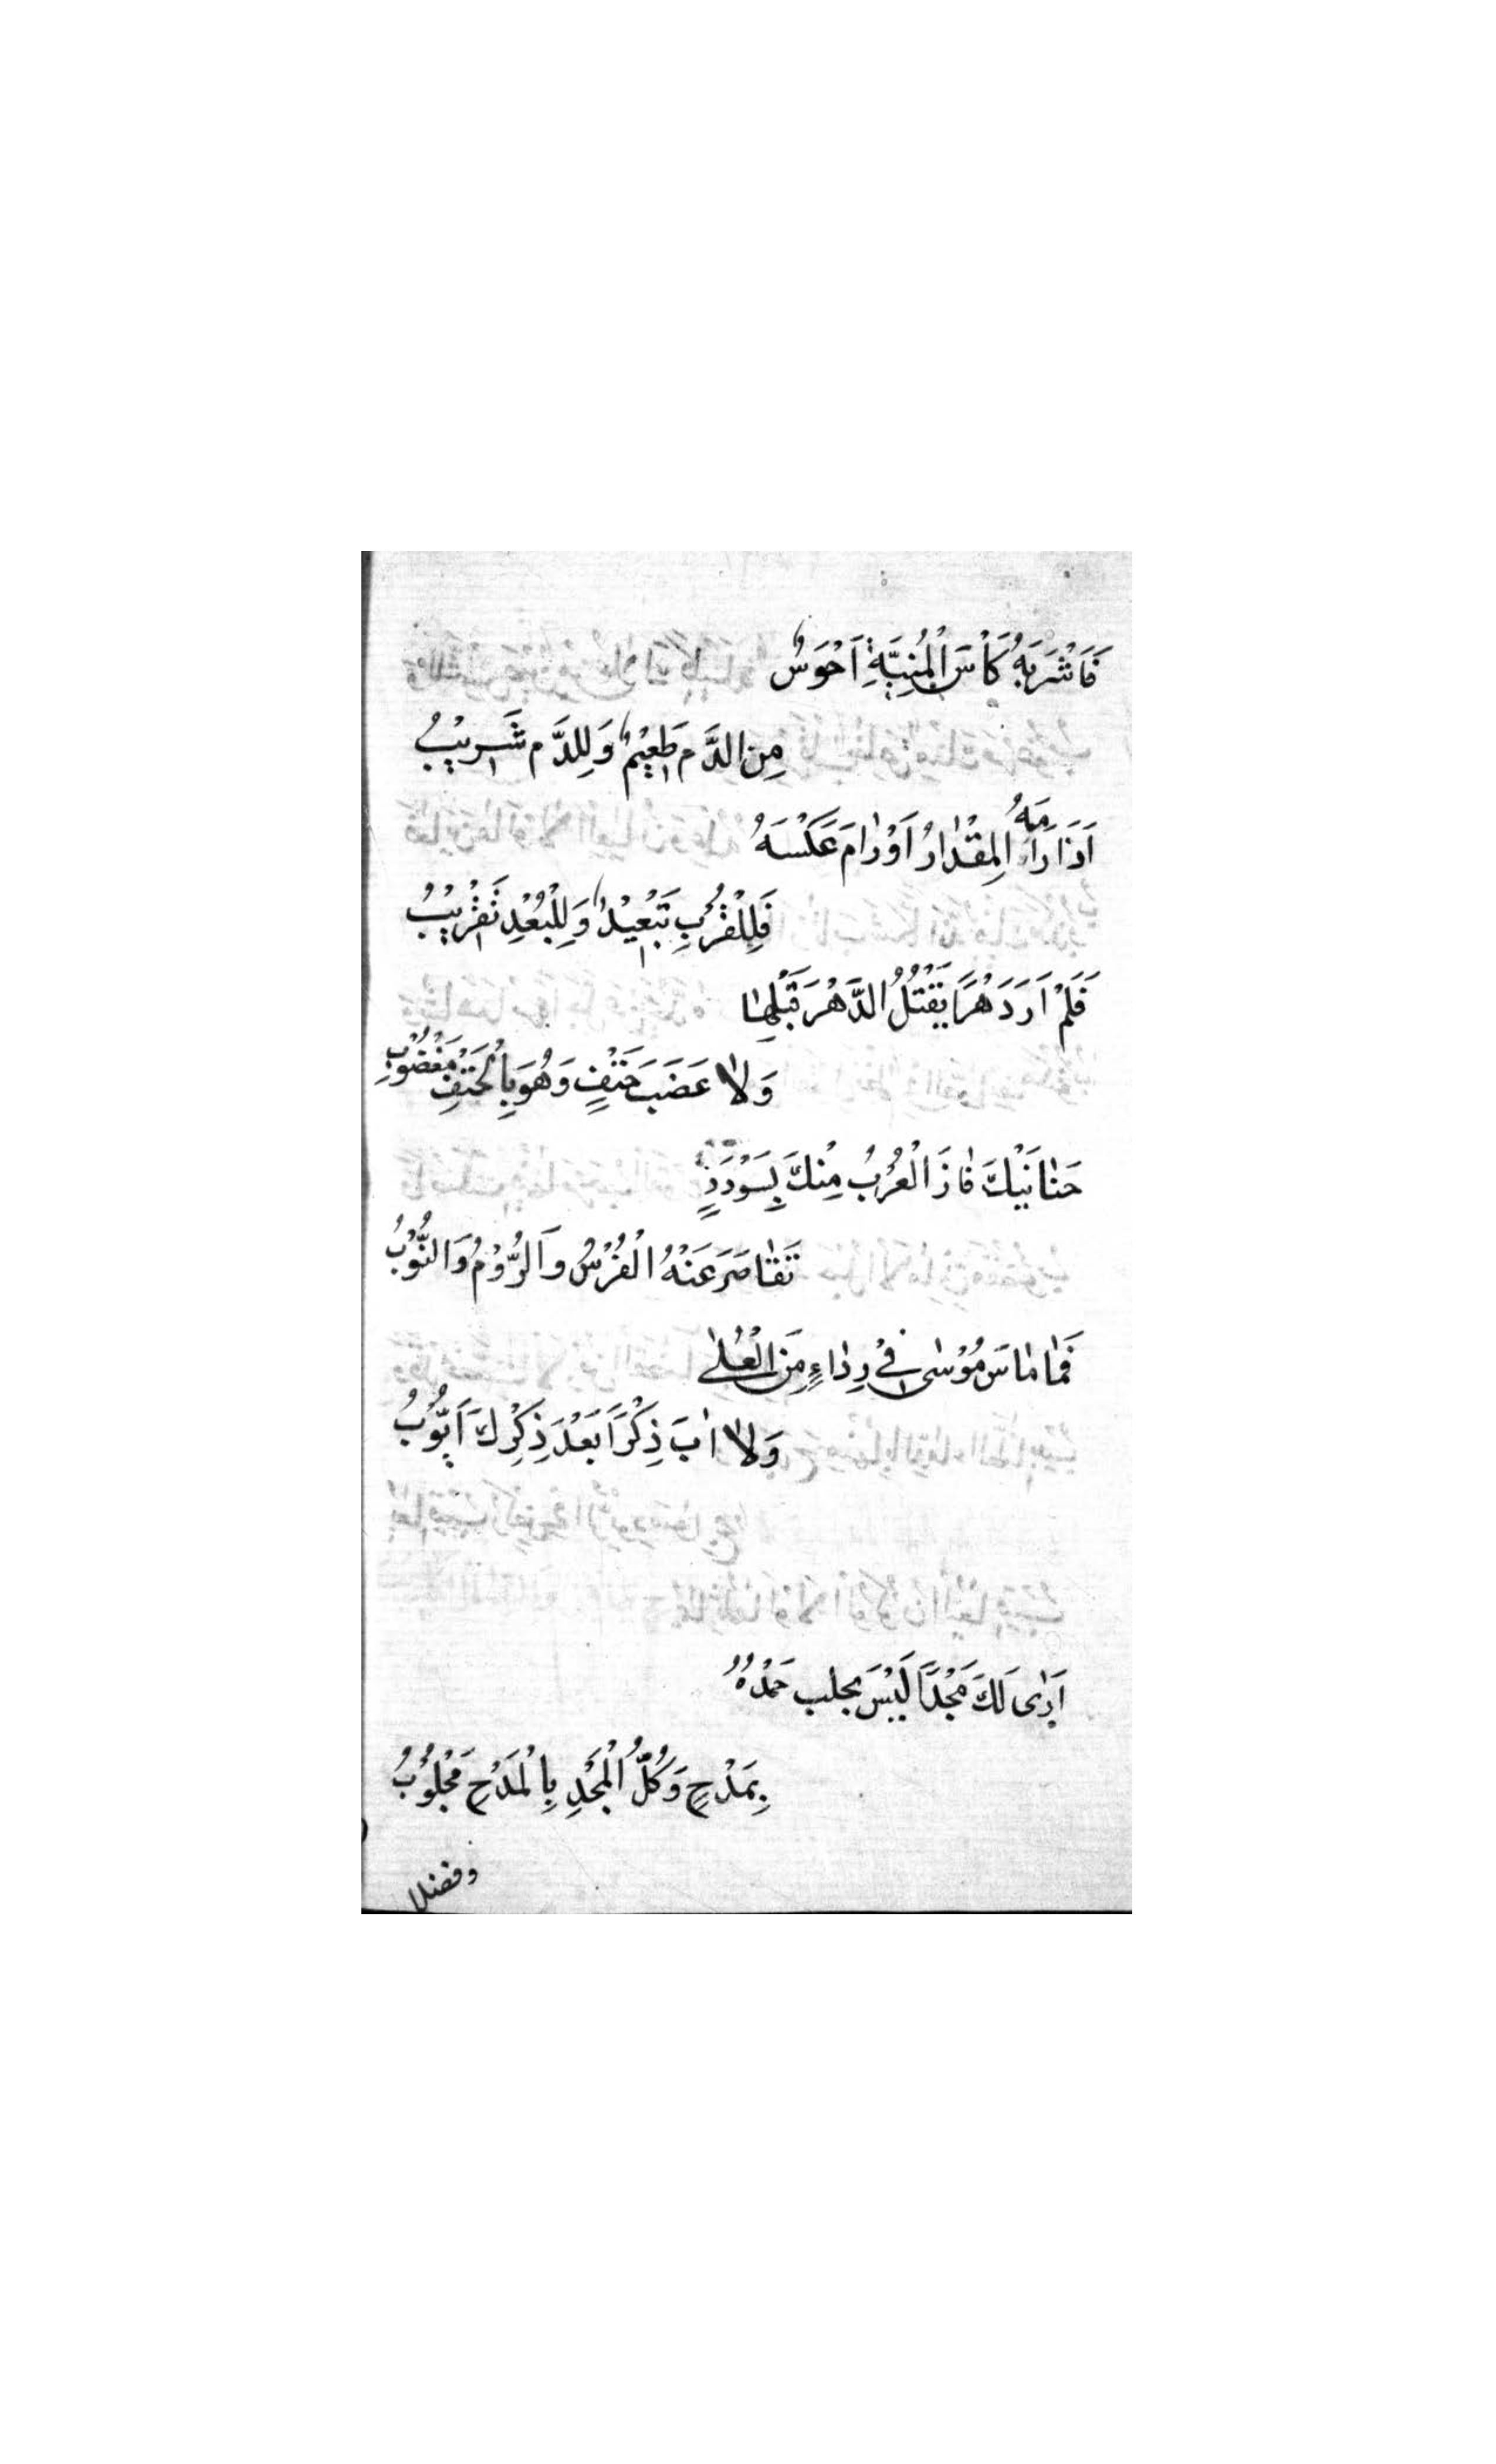 فَاَشْرَبَهُ كَأْسَ الْمُنِيَّةِ اَحْوَسٌ
مِنَ الدَّمِ طَعِيْمٌ وَلِلدَّمِ شَرِيْبُ
اَذَا رَامَهُ الْمِقْدَارُ اَوْ رَامَ عَكْسَهُ
فَلِلْقُرْبِ تَبْعِيْدٌ وَلِلْبُعْدِ تَقْرِيْبُ
فَلَمْ اَرَ دَهْرًا يَقْتُلُ الدَّهْرَ قَبْلَهَا
وَلَا عَضَبَ حَتْفٍ وَهُوَ بِالْحَتْفِ مَعْضُوْبِ
حَنَانَيْكَ فَازَ الْعُرْبُ مِنْكَ بِسَوْدَدٍ
تَقَاصَرَ عَنْهُ الْفُرْسُ وَالرُّوْمُ وَالنُّوْبُ
فَمَا مَاسَ مُوْسٰى فِيْ رِدَاءٍ مِنَ الْعُلٰى
وَلَا اٰبَ ذِكْرًا بَعْدَ ذِكْرِكَ اَيُّوْبُ
اَرٰى لَكَ مَجْدًا لَيْسَ يجلب حَمْدُهُ
بِمَدْحٍ وَكُلُّ الْمَجْدِ بِالْمَدْحِ مَجْلُوْبُ
وفضلا